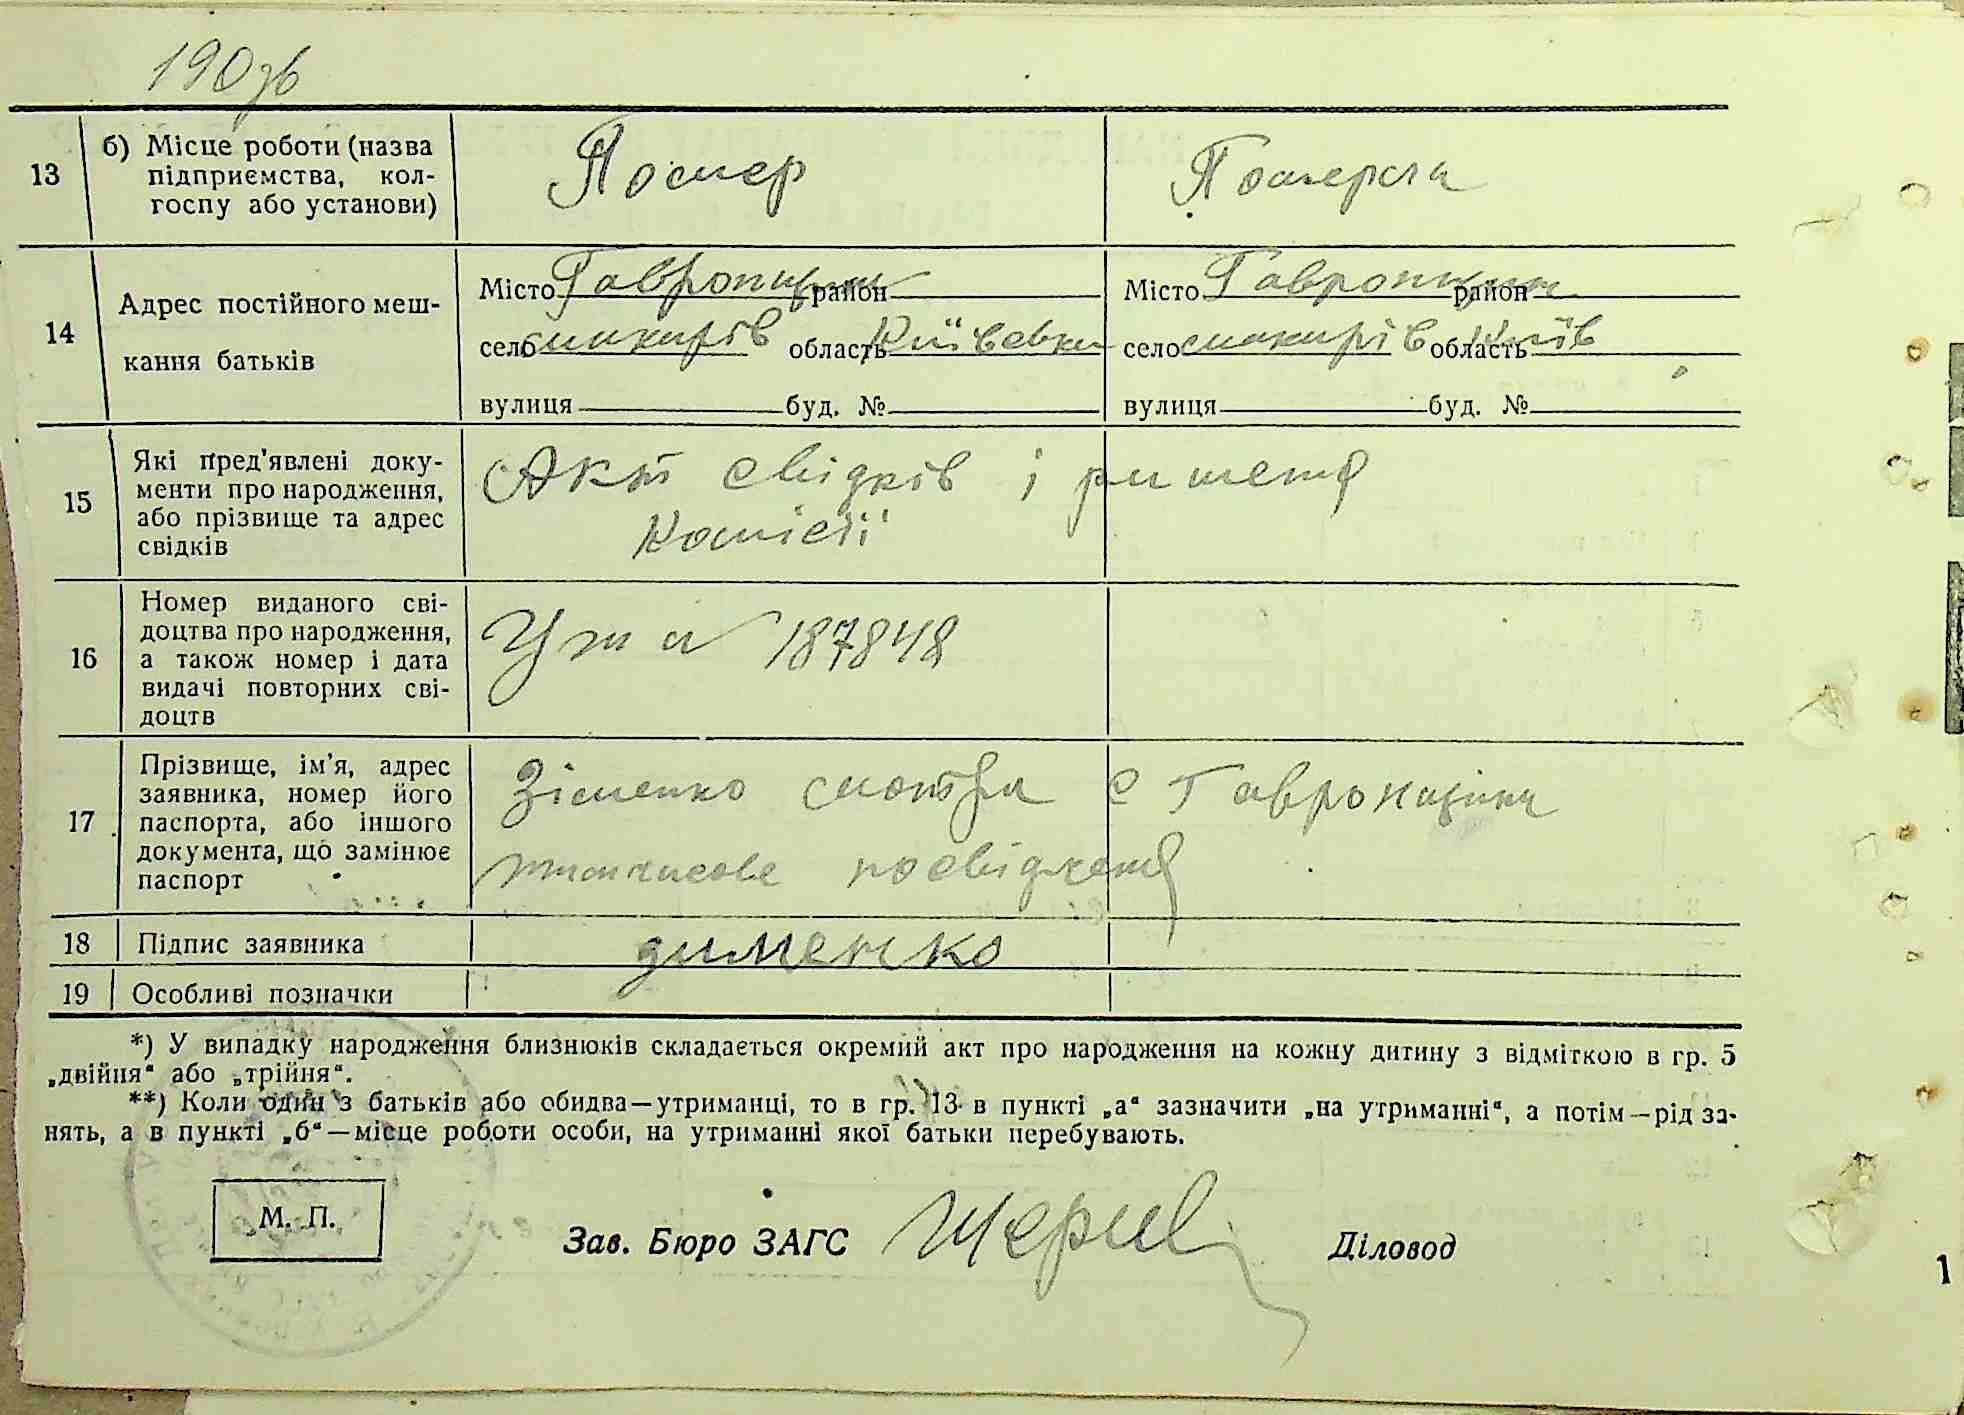 190зв
13 б) Місце роботи (назва підприємства, кол-госпу або установи) Помер Померла
14 Адрес постійного меш-кання батьків
Місто Гавронщин район Місто Гавронщин район
село макирів область Київська село макирів область Київ
вулиця буд. № вулиця буд. №
15 Які пред'явлені доку-
менти про народження,
або прізвище та адрес
свідків
Акт свідків і ришеня
комісії
16 Номер виданого сві-
доцтва про народження,
а також номер і дата
видачі повторних сві-
доцтв
187848
17 Прізвище, ім'я, адрес
заявника, номер його
паспорта, або іншого
документа, що замінює
паспорт
Зіменко мотря с Гавронщина
тимчасове посвідченя
18 Підпис заявника дименко
19 Особливі позначки
*) У випадку народження близнюків складається окремий акт про народження на кожну дитину з відміткою в гр. 5
„двійня“ або „трійня“.
**) Коли один з батьків або обидва—утриманці, то в гр. 13 в пункті „а“ зазначити „на утриманні“, а потім—рід за-
нять, а в пункті „б“—місце роботи особи, на утриманні якої батьки перебувають.
М. П.
Зав. Бюро ЗАГС Діловод
1